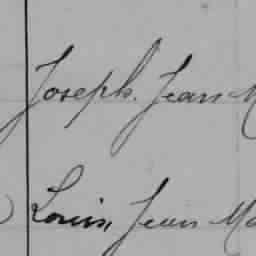 Joseph. Jean M
Louis, Jean Ma